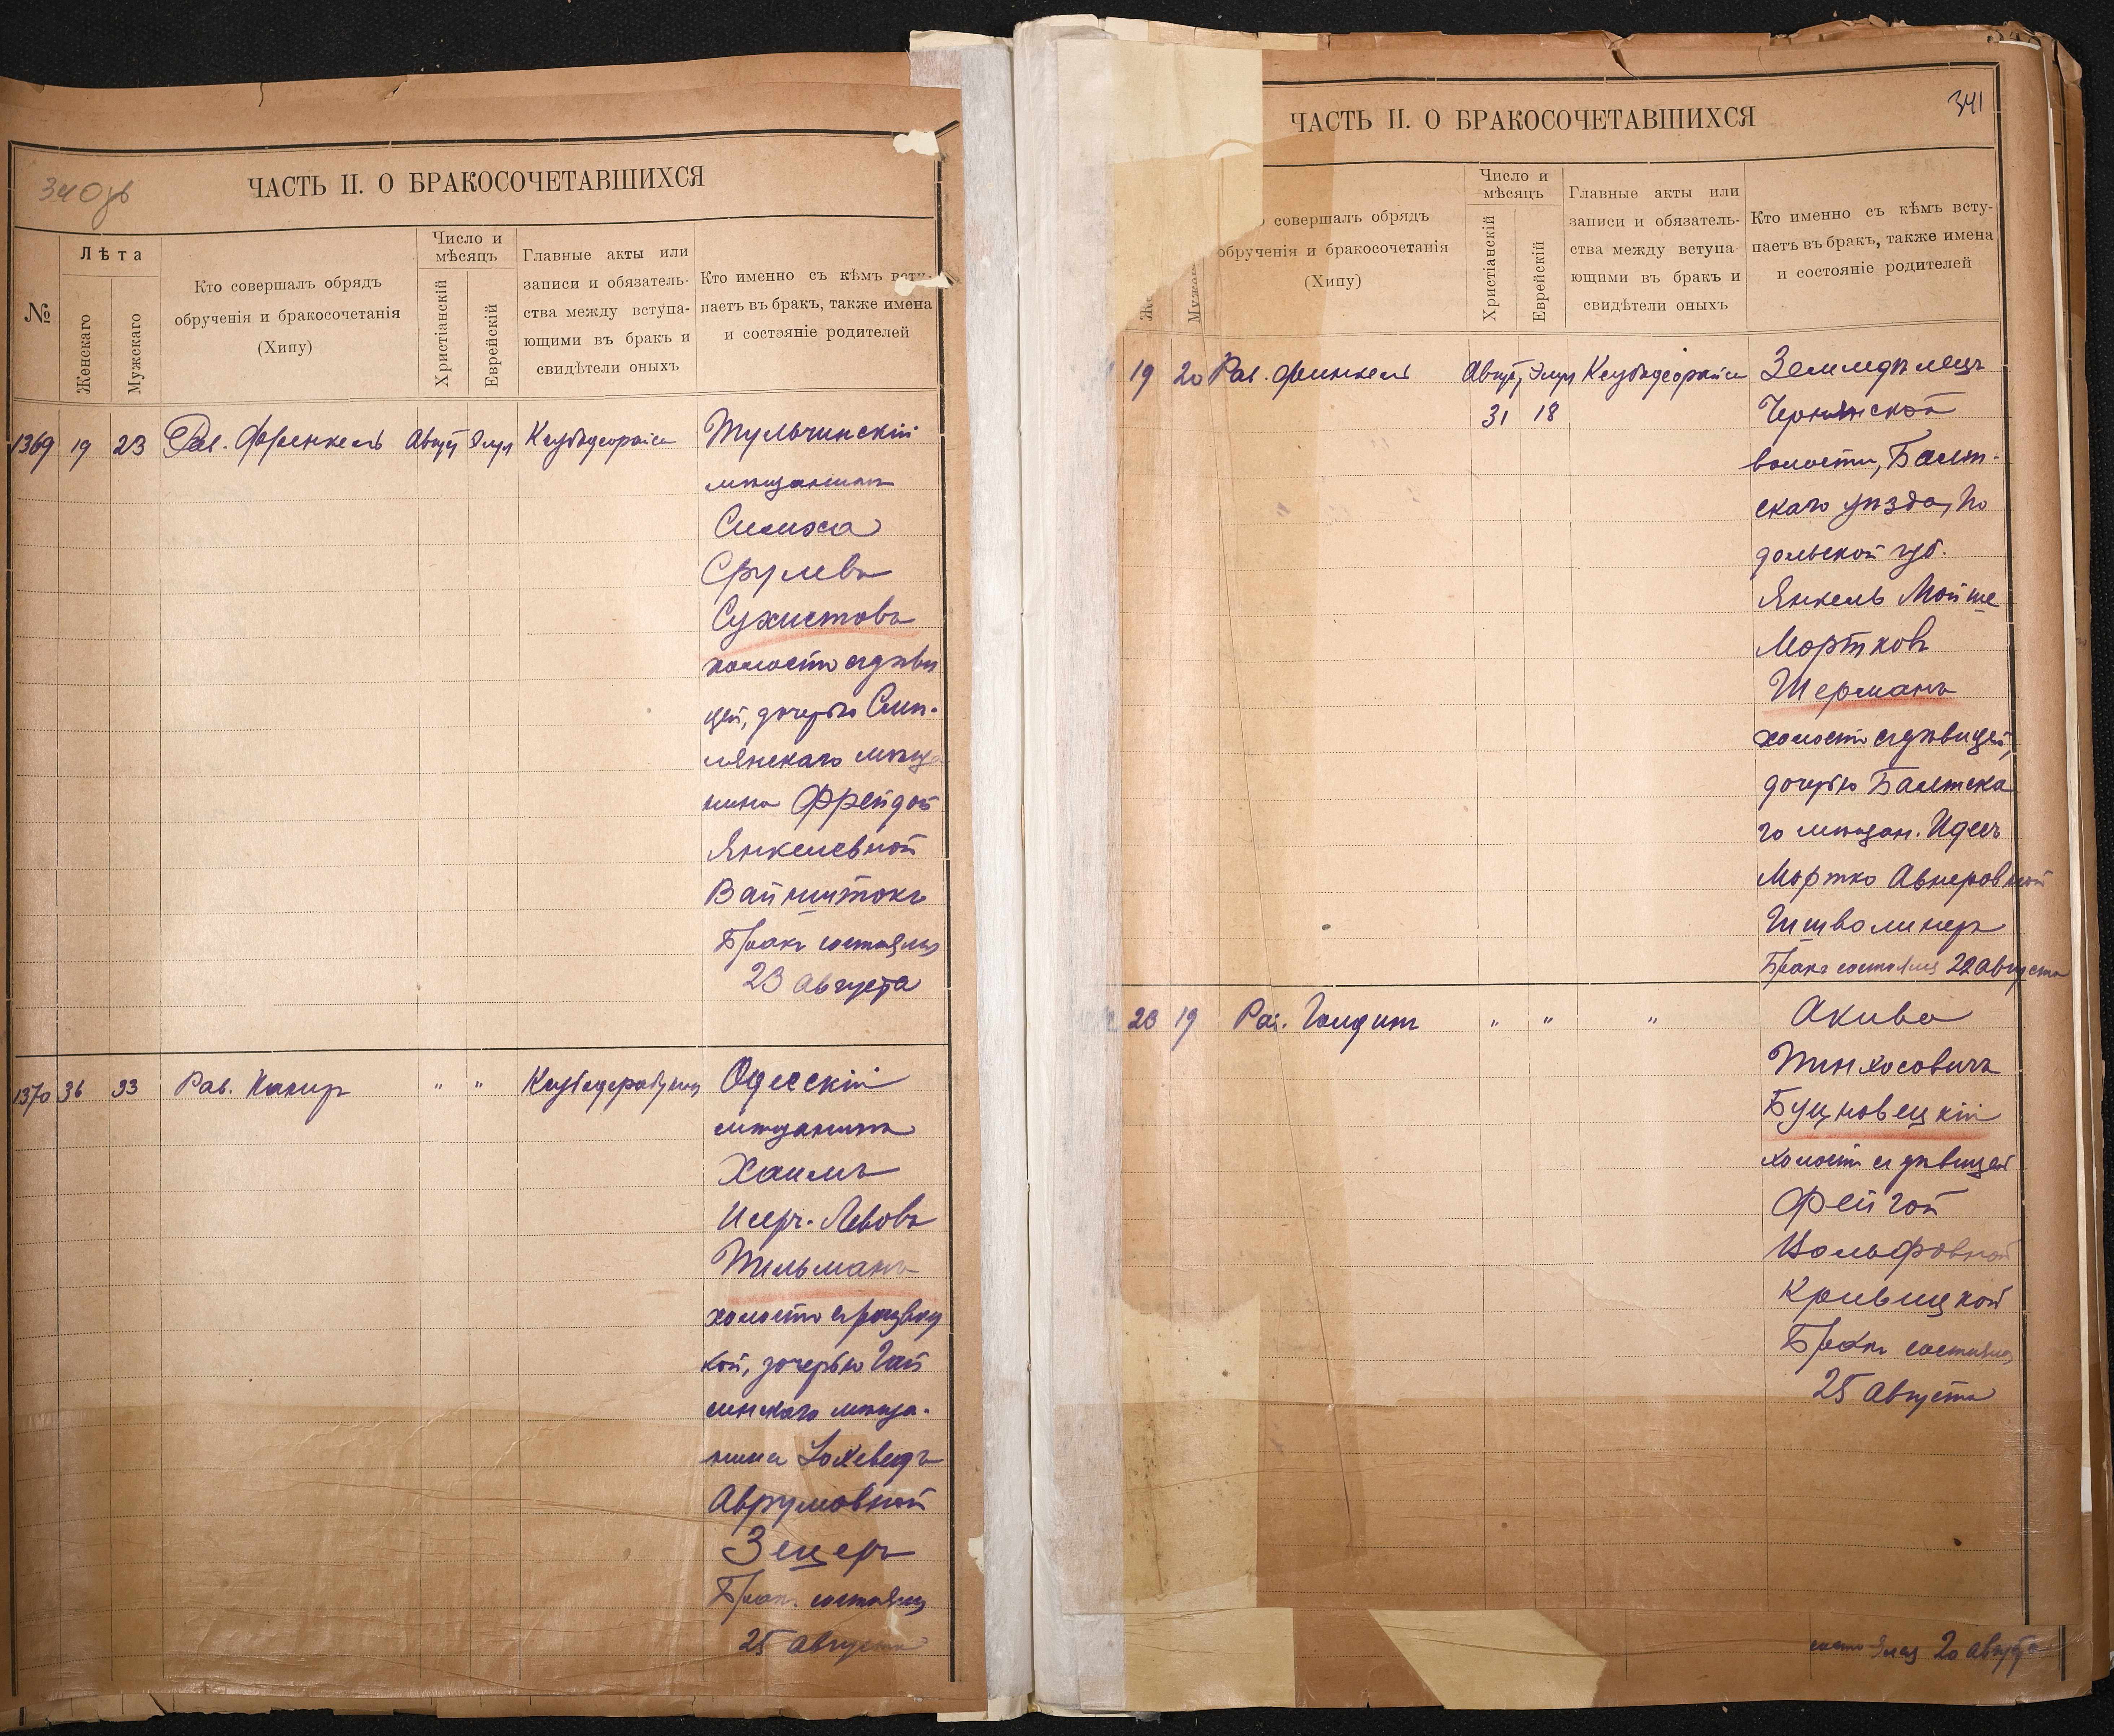 340 об
ЧАСТЬ II. О БРАКОСОЧЕТАВШИХСЯ
№
Лѣта
Женскаго
Мужскаго
Кто совершалъ обрядъ
обрученія и бракосочетанія
(Хипу)
Число и
мѣсяцъ
Христіанскій
Еврейскій
Главные акты или
записи и обязатель-
ства между вступа-
ющими въ бракъ и
свидѣтели оныхъ
Кто именно съ кѣмъ всту-
паетъ въ бракъ, также имена
и состояніе родителей
1369 19 23 Рав. Френкель Август Элул
Тульчинскій
мѣщанинъ
Симха
Срулевъ
Сухистовъ
холостъ съ дѣви
цей, дочерью Смп-
лянскаго мѣща
нина Фрейдой
Янкелевной
Вайнштокъ
Бракъ состоялся
23 Августа
1370 36 33 Рав. " "
Одесскій
мѣщанинъ
Хаимъ
Лебовъ
Тильманъ
холостъ съ развод
кой, дочерью Гай
синскаго мѣща-
нина Іохеведъ
Аврумовной
Зецеръ
Бракъ состоялся
25 Августа
341
ЧАСТЬ II. О БРАКОСОЧЕТАВШИХСЯ
совершалъ обрядъ
обрученія и бракосочетанія
(Хипу)
Число и
мѣсяцъ
Христіанскій
Еврейскій
Главные акты или
записи и обязатель-
ства между вступа-
ющими въ бракъ и
свидѣтели оныхъ
Кто именно съ кѣмъ всту-
паетъ въ бракъ, также имена
и состояніе родителей
19 20 Рав. Финкель Август, Элул
31 18
Земледѣлецъ
Чернянской
волости, Балт-
скаго уѣзда, По
дольской губ.
Янкель Мойше
Мортковъ
Шерманъ
холостъ съ дѣвицей,
дочерью Балтска
го мѣщан. Идесъ
Мортко Авнеровной
Штволинеръ
Бракъ состоялся 22 Августа
23 19 Рав. " " "
Акива
Пинхосовичъ
Буцновецкій
холостъ съ дѣвицей
Фейгой
Вольфовной
Кривицкой
Бракъ состоялся
25 Августа
состоялся 20 августа